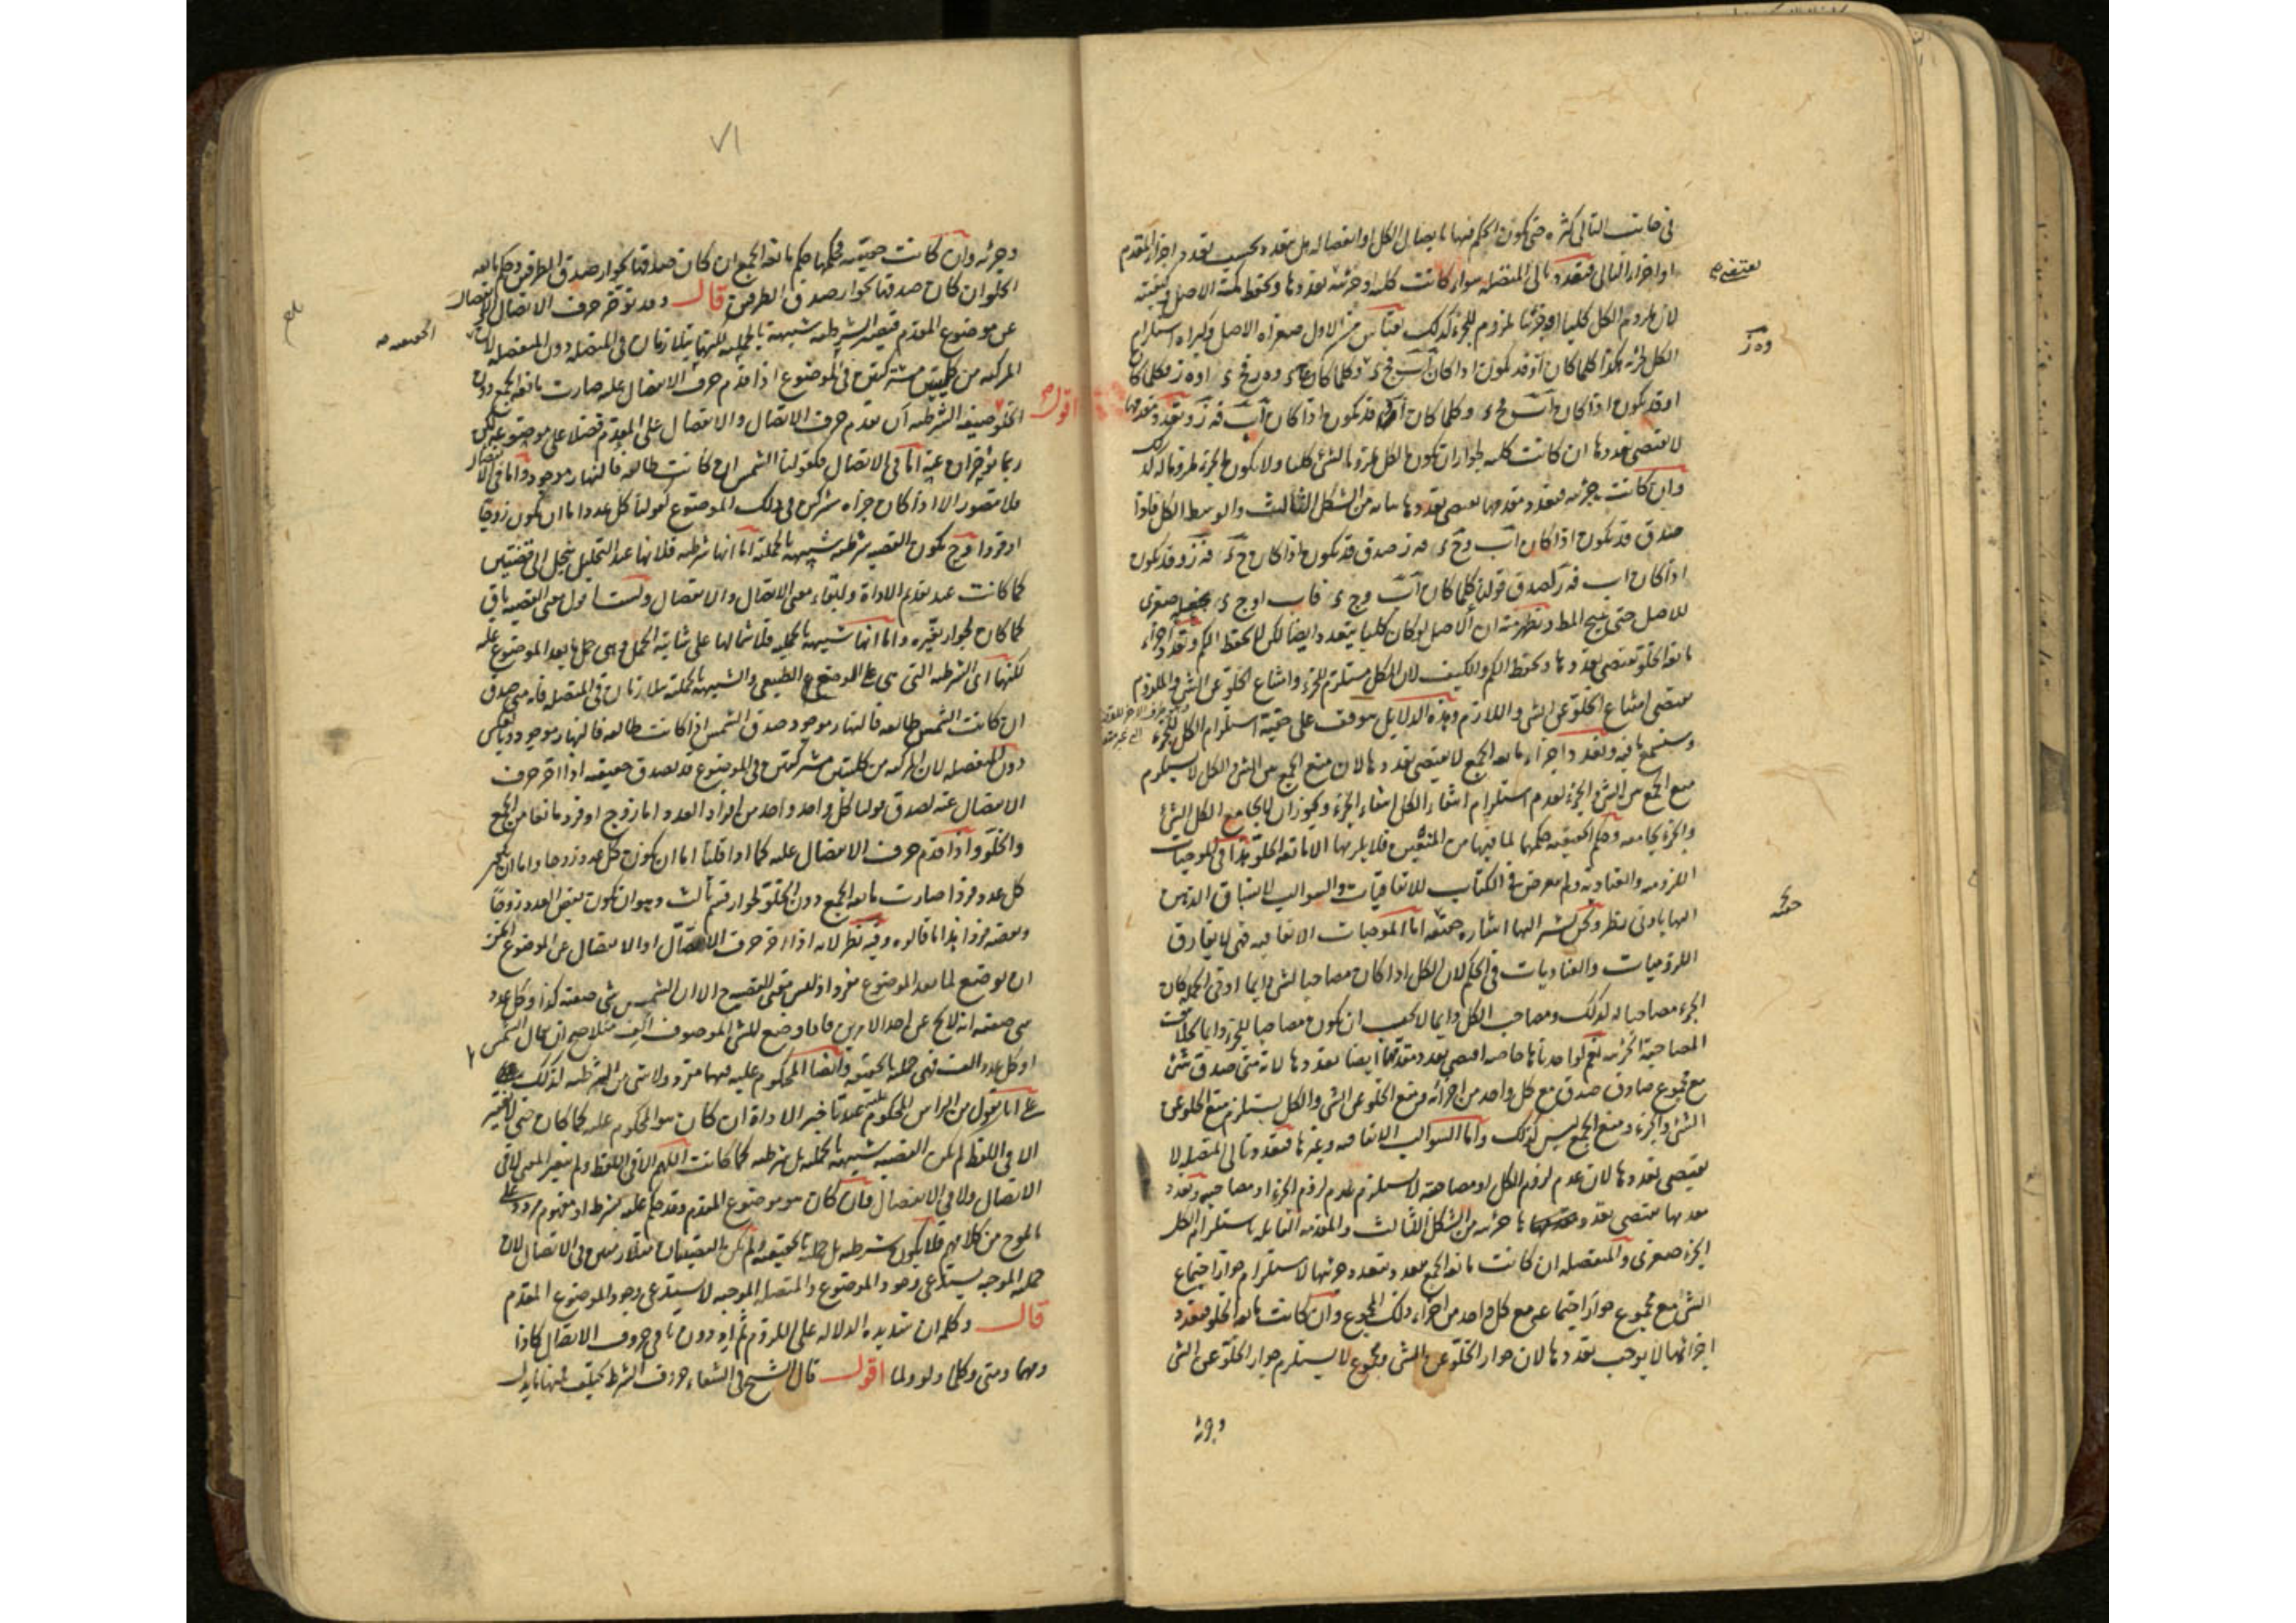 في جانب التالي كثرة حتى يكون الحكم فيها باتصال الكل او انفصاله بل يتعدد بحسب تعدد اجزاء المقدم
او اجزاء التالي فتعدد تالي المتصلة سواء كانت كلية او جزئية تعددها وتحفظ كمية الاصل وكيفيته
يقتضي
لان ملزوم الكل كليا او جزئيا ملزوم للجزء كذلك بقياس من الاول صغراه الاصل وكبراه استلزام
الكل لجزئه هكذا كلما كان او قد يكون اذا كان
او قد يكون اذا كان اب فج د وكلما كان قد يكون اذا كان اب فه ز وتعدد مقدمها
لا يقتضي تعددها ان كانت كلية لجواز ان يكون الكل ملزوما لشيء كليا ولا يكون الجزء ملزوما له كذلك
وان كانت جزئية فتعدد مقدمها يقتضي تعددها من الشكل الثالث والوسط الكل فاذا
صدق قد يكون اذا كان اب وج د فه ز صدق قد يكون اذا كان ج د فه ز وقد يكون
اذا كان اب فه ز لصدق قولنا كلما كان اب وج د فاب او ج د نجعله صغرى
للاصل حتى ينتج المط ويظهر منه ان الاصل لو كان كليا يتعدد ايضا لكن لا يحفظ الكم وتعدد اجزاء
مانعة الخلو يقتضي تعددها ويحفظ الكم والكيف لان الكل مستلزم للجزء وامتناع الخلو عن الشيء والملزوم
يقتضي امتناع الخلو عن الشيء واللازم وهذه الدلايل موقف على حقية استلزام الكل للجزء
وستسمع ما فيه وتعدد اجزاء مانعة الجمع لا يقتضي تعددها لان منع الجمع بين الشيء والكل لا يستلزم
منع الجمع بين الشيء والجزء لعدم استلزام انتفاء الكل انتفاء الجزء ويجوز ان لا يجامع الكل الشيء
والجزء يجامعه وحكم الحقيقية حكمهما لما فيها من المنعين فلا يلزمها الا مانعة الخلو هذا في الموجبات
اللزومية والعنادية ولم يعرض في الكتاب للاتفاقيات والسوالب لانسياق الذهن
اليها بادنى نظر ونحن نشير اليها اشارة خفية اما الموجبات الاتفاقية فهي لا يفارق
اللزوميات والعناديات في الحكم لان الكل اذا كان مصاحبا لشيء دايما او في الجملة كان
الجزء مصاحبا له كذلك ومصاحب الكل دايما لا يجب ان يكون مصاحبا للجزء دايما بخلاف
المصاحبة الجزئية نعم لو اخذناها خاصة اقتضى تعدد مقدمها ايضا تعددها لانه متى صدق شيء
مع مجموع صادق صدق مع كل واحد من اجزائه ومنع الخلو عن الشيء والكل يستلزم منع الخلو عن
الشيء والجزء ومنع الجمع ليس كذلك واما السوالب الاتفاقية وغيرها فتعدد تالي المتصلة لا
يقتضي تعددها لان عدم لزوم الكل او مصاحبته لا يستلزم عدم لزوم الجزء او مصاحبته وتعدد
مقدمها يقتضي تعددها جزئية من الشكل الثالث والمقدمة القائلة باستلزام الكل
الجزء صغرى والمنفصلة ان كانت مانعة الجمع تعدد بتعدد جزئيها لاستلزام جواز اجتماع
الشيء مع مجموع جواز اجتماعه مع كل واحد من اجزاء ذلك المجموع وان كانت مانعة الخلو فتعدد
اجزائها لا يوجب تعددها لان جواز الخلو عن الشيء ومجموع لا يستلزم جواز الخلو عن الشيء
وجزئه
٧١
وجزئه وان كانت حقيقية فحكمها حكم مانعة الجمع ان كان صدقها لجواز صدق الطرفين وحكم مانعة
الخلو ان كان صدقها لجواز صدق الطرفين قال وقد يؤخر حرف الاتصال والانفصال
عن موضوع المقدم فيصير الشرطية شبيهة بالحملية لكنهما يتلازمان في المتصلة دون المنفصلة لان
الحقيقية صح
المركبة من كليتين مشتركتين في الموضوع اذا قدم حرف الانفصال عليه صارت مانعة الجمع دون
الخلو اقول صيغة الشرطية ان يقدم حرف الاتصال والانفصال على المقدم فضلا على موضوعه لكن
ربما يؤخران عنه اما في الاتصال فكقولنا الشمس ان كانت طالعة فالنهار موجود واما في الانفصال
فلا يتصور الا اذا كان جزاه مشتركين في ذلك الموضوع كقولنا كل عدد اما ان يكون زوجا
او فردا وح يكون القضية شرطية شبيهة بالحملية اما انها شرطية فلانها عند التحليل ينحل الى قضيتين
كما كانت عند تقديم الاداة ولبقاء معنى الاتصال والانفصال ولست اقول معنى القضية باق
كما كان لجواز تغيره واما انها شبيهة بالحملية فلاشتمالها على شايبة الحمل وهي حمل ما بعد الموضوع عليه
لكنهما اي الشرطية التي هي على الوضع الطبيعي والشبيهة بالحملية يتلازمان في المتصلة فانه متى صدق
ان كانت الشمس طالعة فالنهار موجود صدق الشمس اذا كانت طالعة فالنهار موجود وبالعكس
دون المنفصلة لان المركبة من كليتين مشتركتين في الموضوع قد يصدق حقيقية اذا اخر حرف
الانفصال عنه لصدق قولنا كل واحد واحد من افراد العدد اما زوج او فرد مانعا من الجمع
والخلو واذا قدم حرف الانفصال عليه كما اذا قلنا اما ان يكون كل عدد زوجا واما ان يكون
كل عدد فردا صارت مانعة الجمع دون الخلو لجواز قسم ثالث وهو ان يكون بعض العدد زوجا
وبعضه فردا هذا ما قالوه وفيه نظر لانه اذا اخر حرف الاتصال او الانفصال عن الموضوع امكن
ان يوضع لما بعد الموضوع مفردا اذ ليس معنى القضية ح الا ان الشمس شيء صفته كذا وكل عدد
شيء صفته انه لا يخ عن احد الامرين فاذا وضع للشيء الموصوف الف مثلا صح ان يقال الشمس
او كل عدد الف فهي حملية بالحقيقة وايضا المحكوم عليه فيهما مفرد ولا شيء من الشرطية كذلك
على انا نقول من الراس المحكوم عليه عند تاخير الاداة ان كان هو المحكوم عليه كما كان حتى لا تغير
الا في اللفظ لم يكن القضية شبيهة بالحملية بل شرطية كما كانت اللهم الا في اللفظ ولم يتغير المعنى لا في
الاتصال ولا في الانفصال وان كان هو موضوع المقدم وقد حكم عليه بشرط او مفهوم مردد على
ما يلوح من كلامهم فلا يكون شرطية بل حملية بالحقيقة ولم يكن القضيتان متلازمتين في الاتصال لان
حملية الموجبة يستدعي وجود الموضوع والمتصلة الموجبة لا يستدعي وجود الموضوع المقدم
قال وكلمة ان شديدة الدلالة على اللزوم ثم اذ ودون باقي حروف الاتصال كاذا
ومهما ومتى وكلما ولو ولما اقول قال الشيخ في الشفاء حروف الشرط يختلف فمنها ما يدل